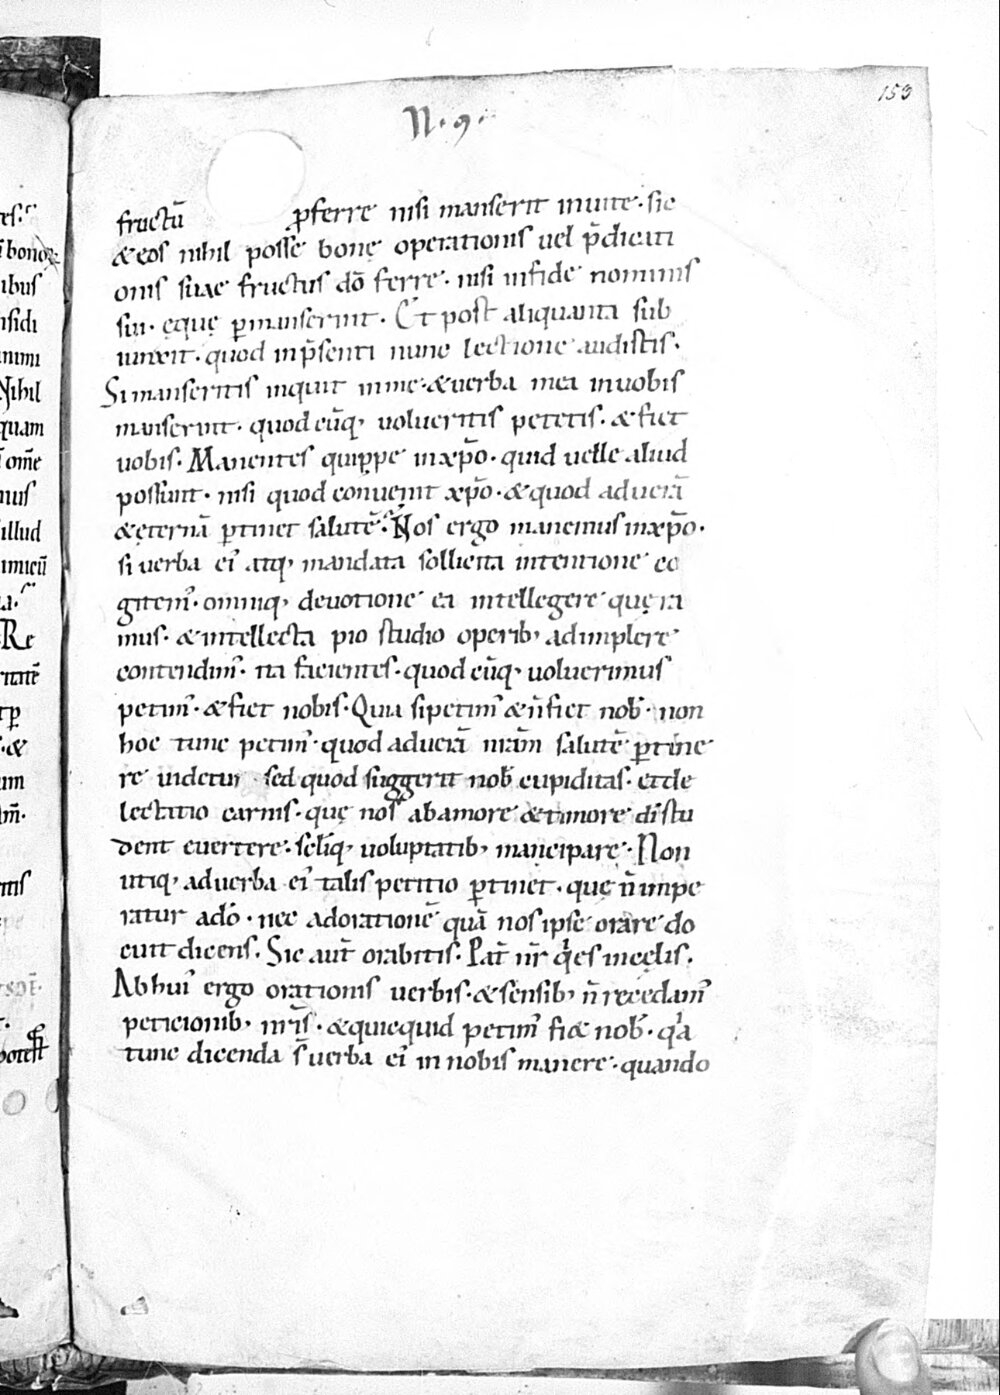 153
N·9·
fructū p̄ferre nisi manserit inuite· sic
& eos nihil posse bonę operationis uel p̄dicati
onis suae fructus dō ferre· nisi infide nominis
sui· ęquę ꝑmanserint· Et post aliquanta sub
iunxit· quod inp̄senti nunc lectione audistis·
Simanseritis inquit inme· & uerba mea inuobis
manserint· quod cūq; uolueritis petetis· & fiet
uobis· Manentes quippe inxp̄o· quid uelle aliud
possunt· nisi quod conuenit xp̄o· & quod aduerā
& ęternā ꝑtinet salutē· Nos ergo manemus inxp̄o·
si uerba ei᾽ atq; mandata sollicita intentione co
gitem᾽· omniq; deuotione ea intellegere quęra
mus· & intellecta pio studio operib; adimplere
contendim᾽· ita facientes· quod cūq; uoluerimus
petim᾽· & fiet nobis· Quia sipetim᾽ & n̄ fiet nob̄· non
hoc tunc petim᾽· quod aduerā nr̄am salutē ꝑtine
re uidetur sed quod suggerit nob̄ cupiditas· et de
lectatio carnis· quę nos abamore & timore dī stu
dent euertere· sēliq; uoluptatib; mancipare· Non
utiq; aduerba ei᾽ talis petitio ꝑtinet· quę n̄ impe
ratur adō· nec adorationē quā nos ipse orare do
cuit dicens· Sic aut̄ orabitis· Pat̄ nr̄ qⁱ es incęlis·
Abhui᾽ ergo orationis uerbis· & sensib; n̄ recedam᾽
peticionib; nr̄is· & quicquid petim᾽ fi& nob̄· qⁱa
tunc dicenda s̄ uerba ei᾽ in nobis manere· quando